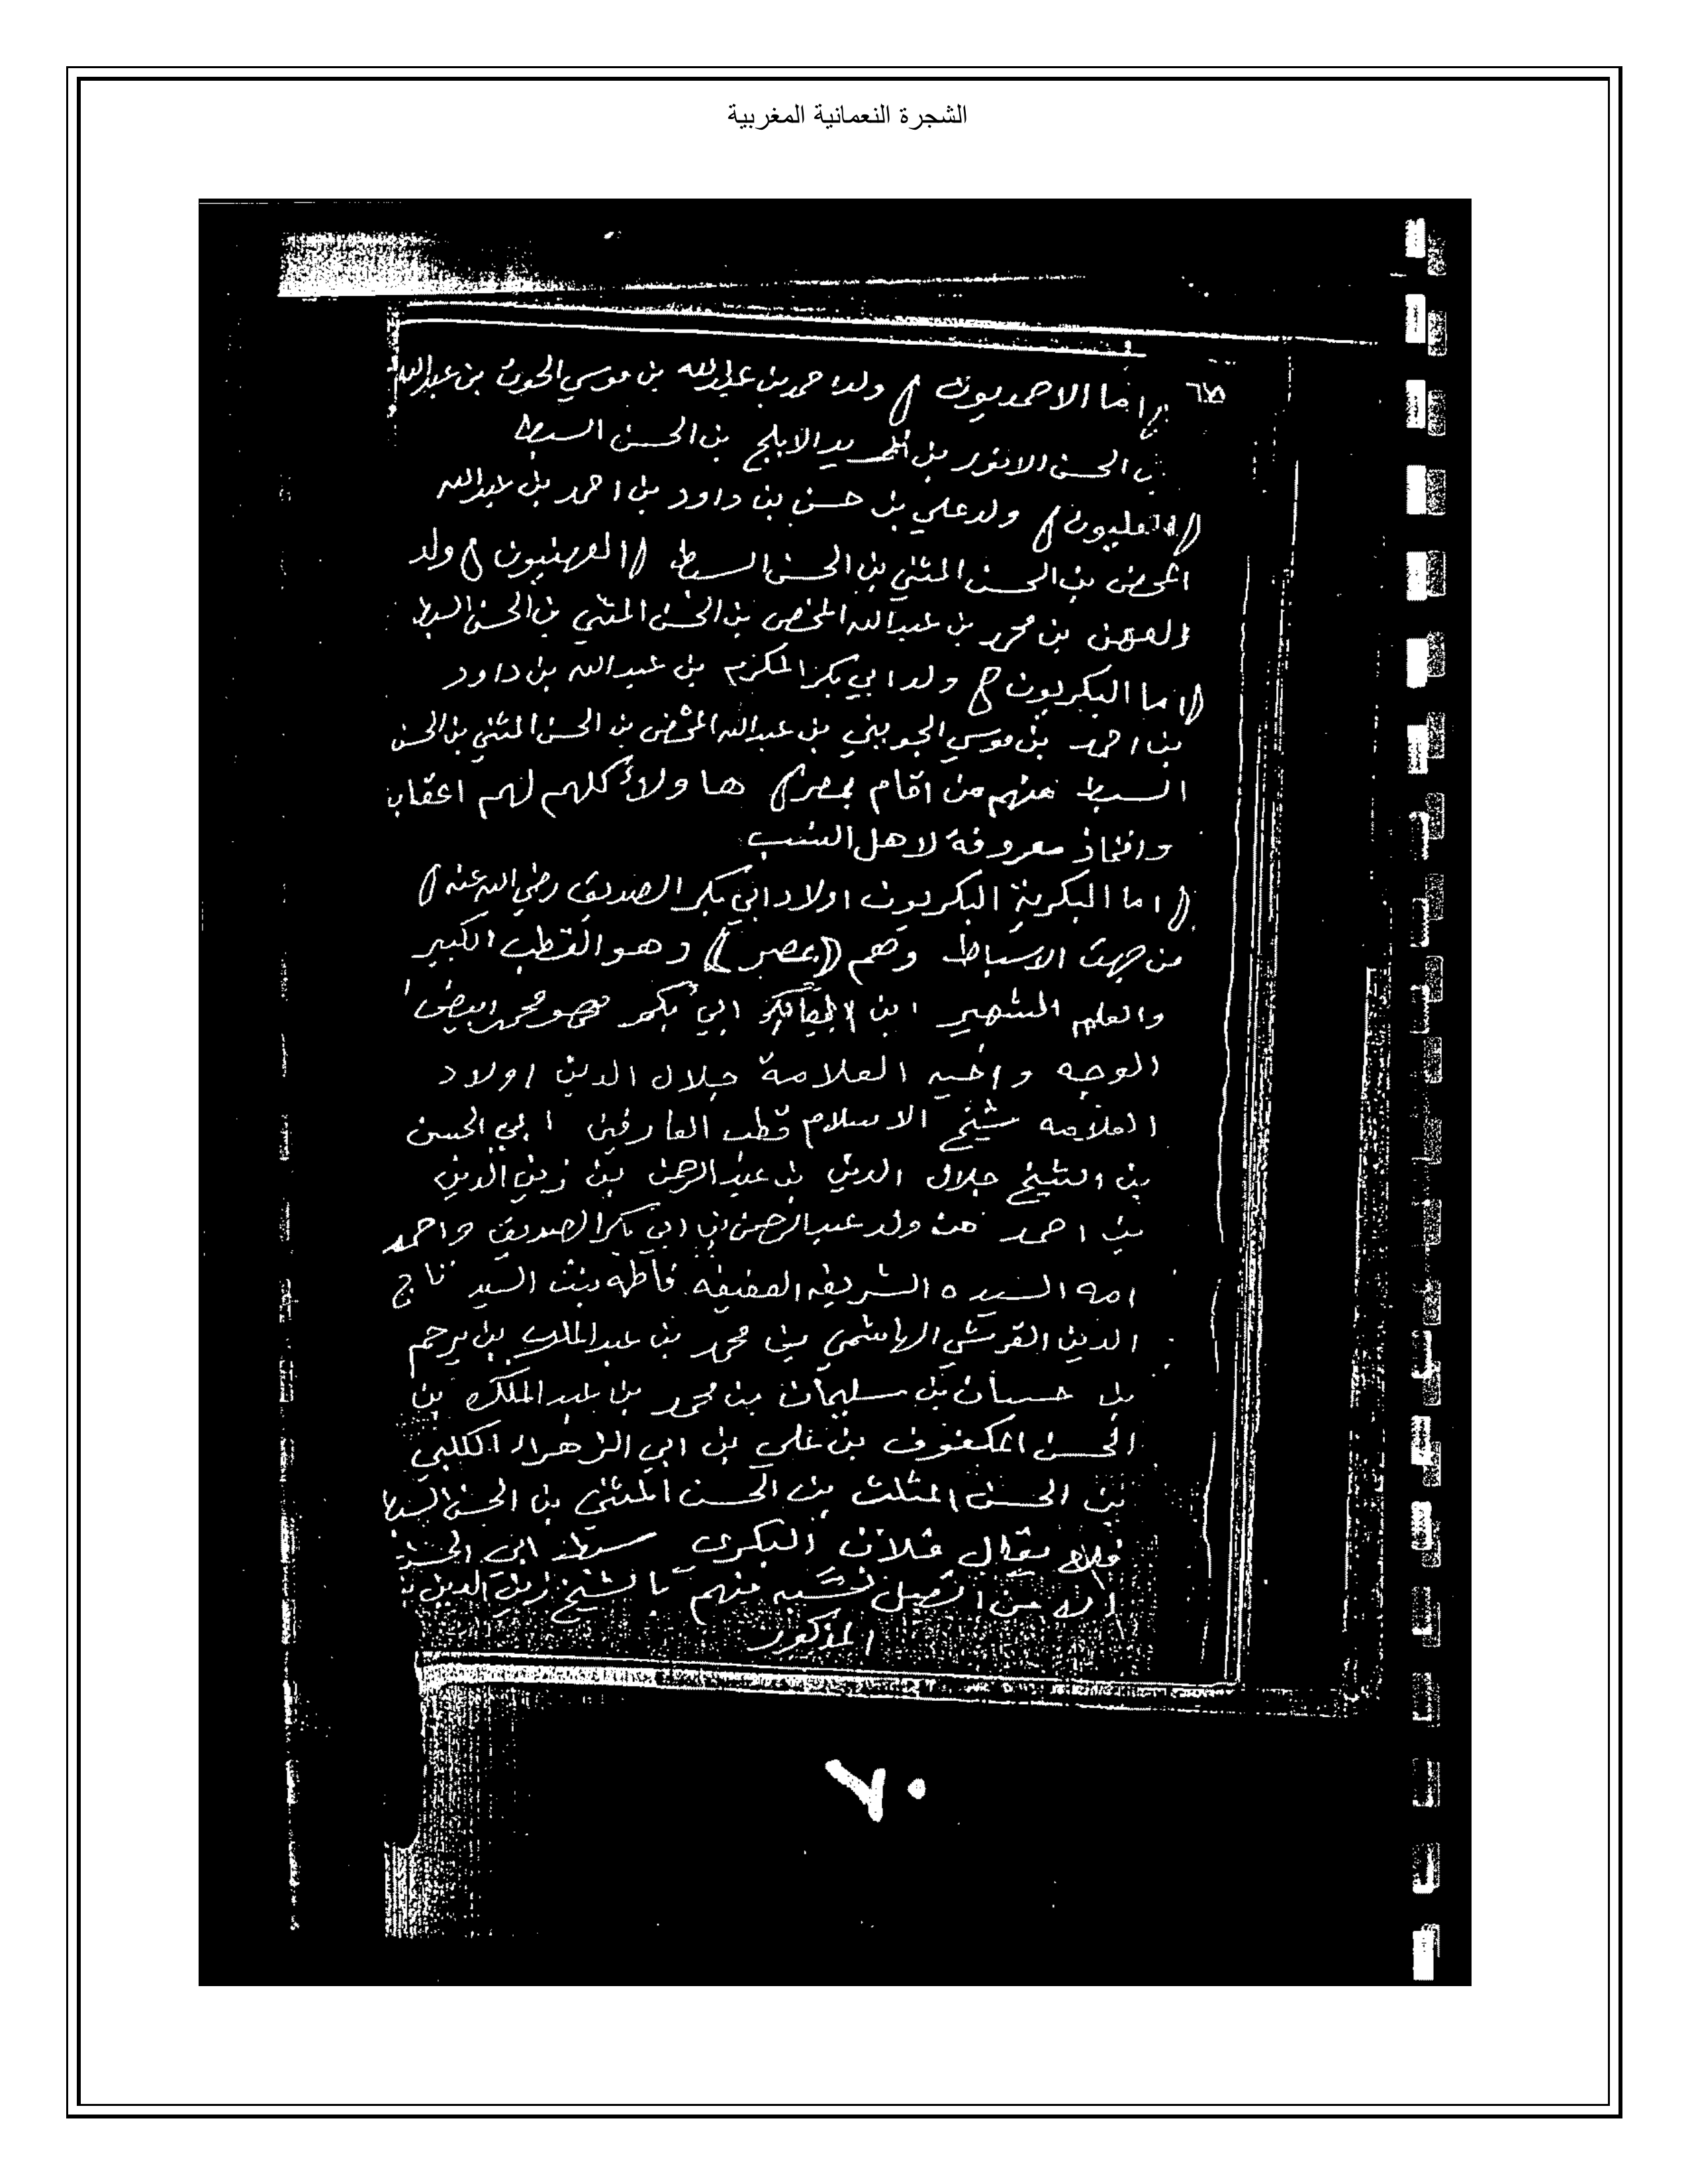 الشجرة النعمانية المغربية
اما الاحمديون ولد احمد بن عبدالله بن موسي الجون بن عبدالله
بن الحسن الانور بن الابلج بن الحسن السبط
العليون ولد علي بن حسن بن داود بن احمد بن عبدالله
المحض بن الحسن المثني بن الحسن السبط العهنيون ولد
العهن بن محمد بن عبدالله المحض بن الحسن المثني بن الحسن السبط
اما البكريون ولد ابي بكر المكرم بن عبدالله بن داود
بن احمد بن موسي الجويني بن عبدالله المحض بن الحسن المثني بن الحسن
السبط منهم من اقام بمصر ها ولاء كلهم لهم اعقاب
وافخاذ معروفة لاهل النسب
اما البكرية البكريون اولاد ابي بكر الصديق رضي الله عنه
من جهت الاسباط وهم (بمصر) وهو القطب الكبير
والعلم الشهير ابن ابي بكر هو محمد ابيض ا
الوجه واخيه العلامة جلال الدين اولاد
العلامه شيخ الاسلام قطب العارفين ابي الحسن
بن الشيخ جلال الدين بن عبدالرحمن بن زين الدين
بن احمد من ولد عبدالرحمن بن ابي بكر الصديق واحمد
امه السيده الشريفه العفيفه فاطمه بنت السيد تاج
الدين القرشي الهاشمي بن محمد بن عبدالملك بن يرحم
بن حسان بن سليمان بن محمد بن عبدالملك بن
الحسن المكفوف بن علي بن ابي الزهراء الكلبي
بن الحسن المثلث بن الحسن المثني بن الحسن السبط
فلا يقال فلان البكري سبط ابن الحسن
الا من اتصل نسبه منهم بالشيخ زين الدين
المذكور
٧٠